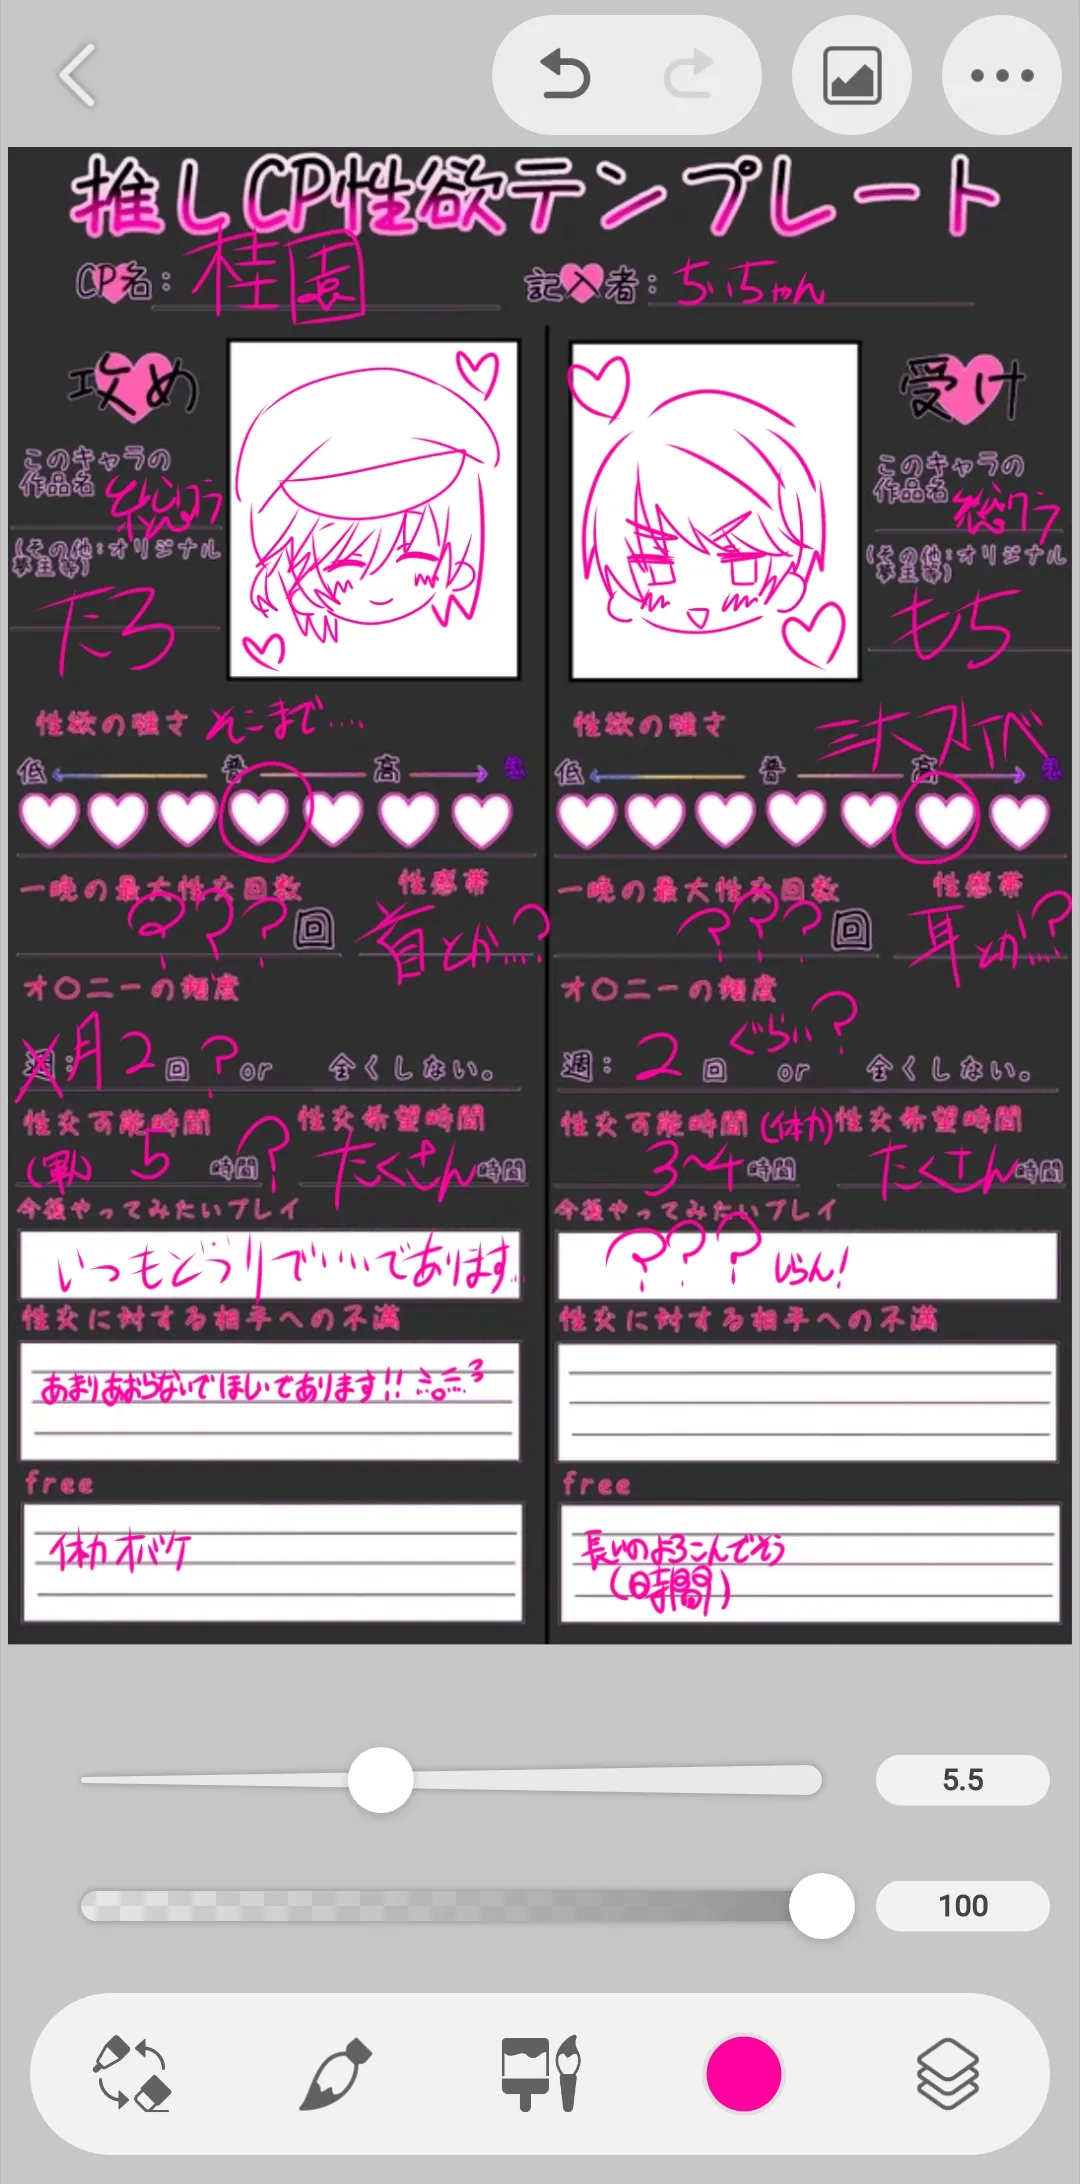 推しCP性欲テンプレート
CP名： 桂園
記入者： ちぃちゃん
攻め
このキャラの
作品名 総クラ
(その他：オリジナル
夢主等)
たろ
受け
このキャラの
作品名 総クラ
(その他：オリジナル
夢主等)
もち
性欲の強さ そこまで....
低 普 高 鬼
一晩の最大性交回数
???回
性感帯
首とか...?
オ〇ニーの頻度
週： 月2回? or 全くしない。
性交可能時間
(軍人) 5時間?
性交希望時間
たくさん時間
今後やってみたいプレイ
いつもどうりでいいであります..
性交に対する相手への不満
あまりあおらないでほしいであります!!
free
体力オバケ
性欲の強さ 大スケベ
低 普 高 鬼
一晩の最大性交回数
???回
性感帯
耳とか...?
オ〇ニーの頻度
週： 2回 ぐらい? or 全くしない。
性交可能時間 (体力)
3~4時間
性交希望時間
たくさん時間
今後やってみたいプレイ
??? しらん!
性交に対する相手への不満
free
長いのよろこんでそう
(時間)
5.5
100